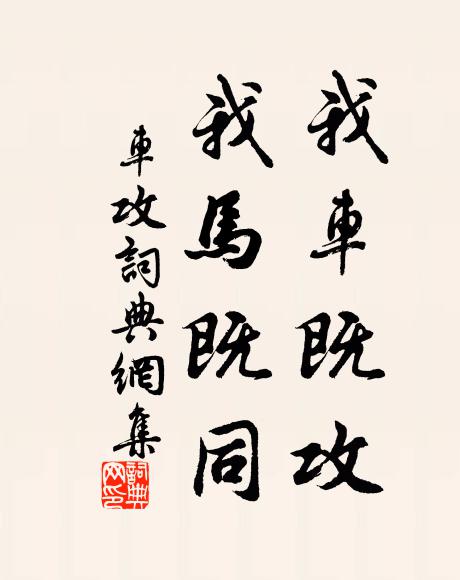 我車既攻
我馬既同
車攻詞典網集
詞典网印